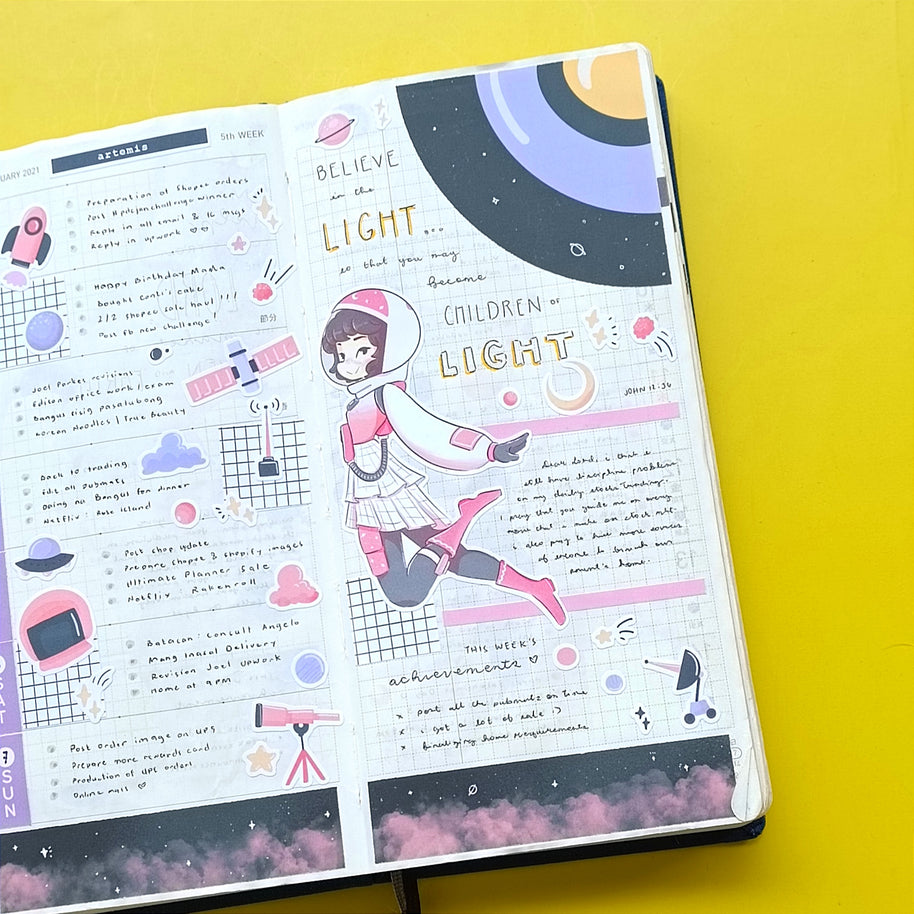 UARY 2021
artemis
5th WEEK
Preparation of Shopee orders
Post winner
Reply in all email & ig msgs
Reply in upwork ♡♡
Happy Birthday
Bought Conti's cake
2/2 shopee sale haul !!!
Post fb new challenge!
節分
Joel Parker revisions
Edison office work / exam
Bangus sisig pasalubong
Korean Noodles / True Beauty
Back to trading
Edit all submats
Daing na Bangus for dinner
Netflix: Rose Island
Post shop update
Prepare shopee & shopify images
Ultimate Planner Sale
Netflix: Rakenroll
Batacan: Consult Angelo
Mang Inasal Delivery
Revision Joel upwork
Home at 9pm
SAT
7
SUN
Post order image on
Prepare more rewards card
Production of orders
Online mass ♡
BELIEVE
in the
LIGHT
so that you may
become
CHILDREN OF
LIGHT
JOHN 12:36
Dear Lord, i that i
still have discipline problem
on my daily stocks trading.
I pray that you guide me on every
move that i make on stock mkt.
i also pray to have more sources
of income to finish our
parent's home.
THIS WEEK'S
achievements ♡
x post all the submats on time
x i got a lot of sale :)
x home requirements